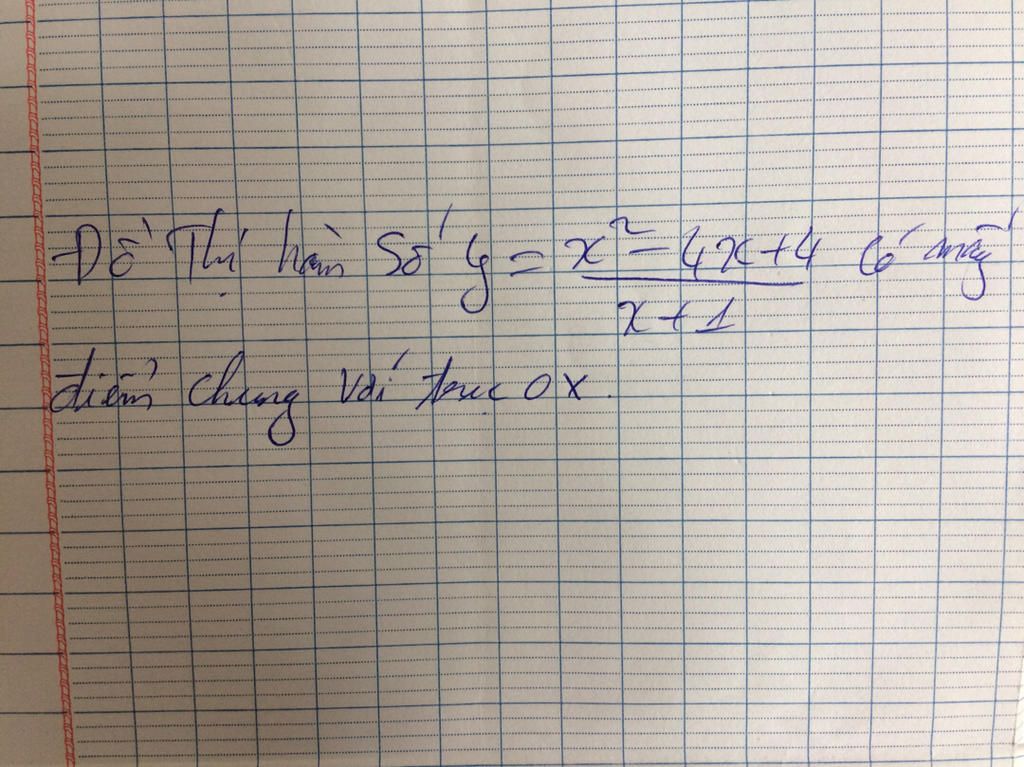 Đồ Thị hàm Số y = x² - 4x + 4 / x + 1 Có mấy
điểm chung với trục OX.